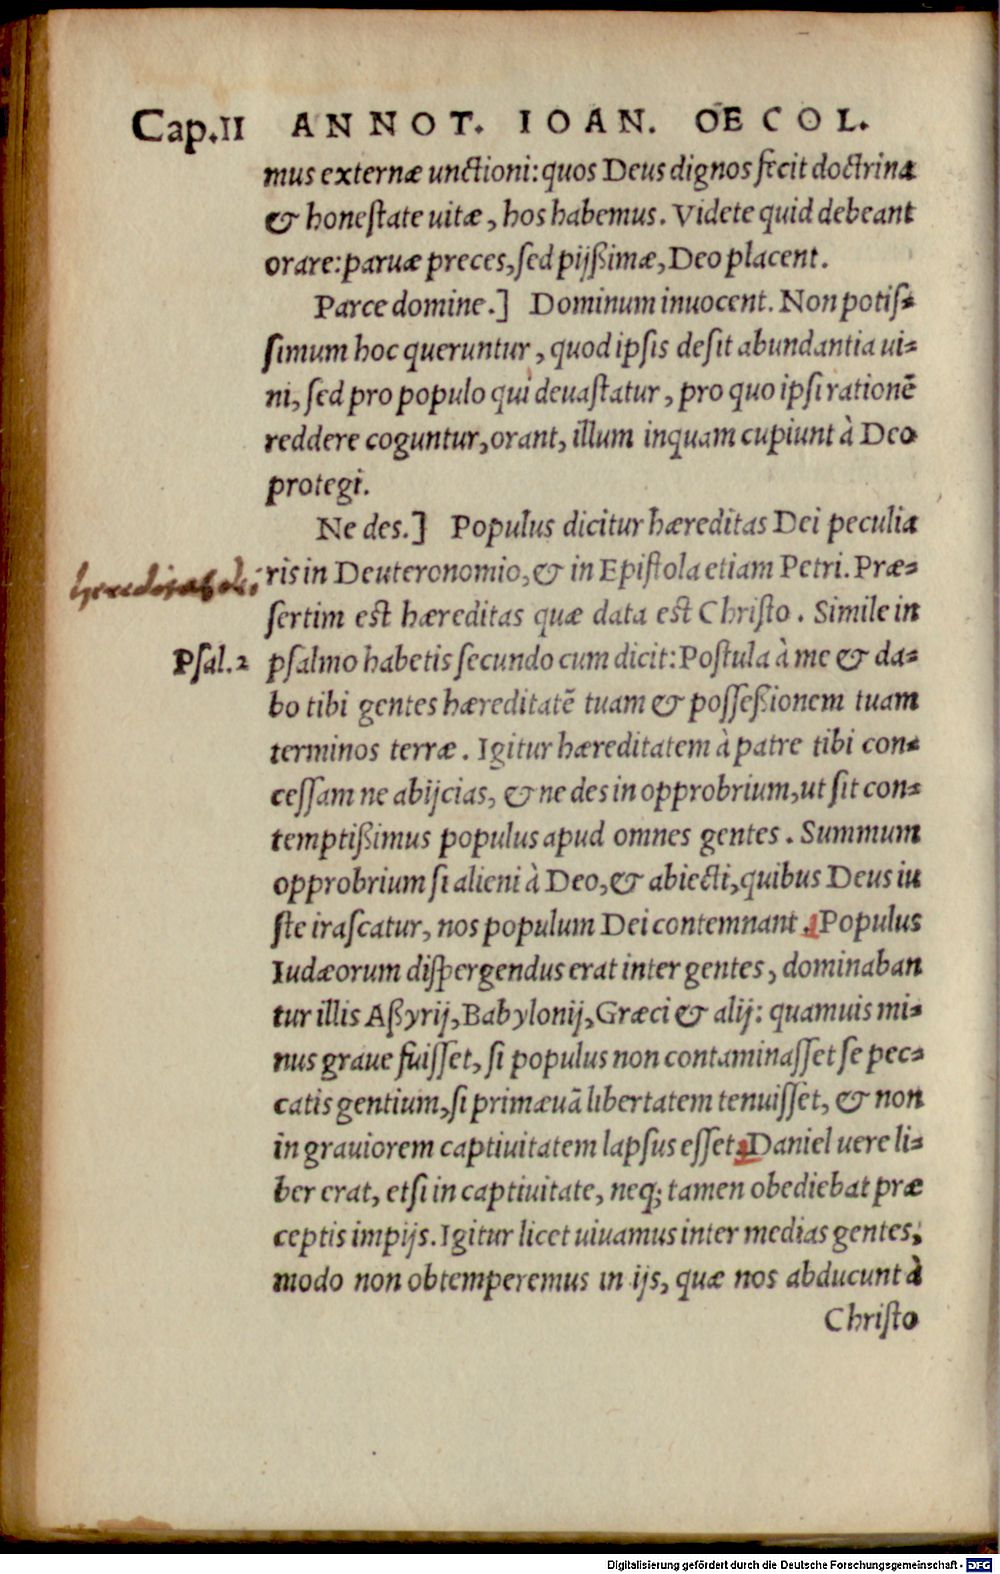 Cap.II ANNOT. IOAN. OECOL.
mus externæ unctioni: quos Deus dignos fecit doctrina
& honeſtate uitæ, hos habemus. Videte quid debeant
orare: paruæ preces, ſed pijßimæ, Deo placent.
Parce domine.] Dominum inuocent. Non potiſ-
ſimum hoc queruntur, quod ipſis deſit abundantia ui-
ni, ſed pro populo qui deuaſtatur, pro quo ipſi rationē
reddere coguntur, orant, illum inquam cupiunt à Deo
protegi.
Ne des.] Populus dicitur hæreditas Dei peculia
ris in Deuteronomio, & in Epiſtola etiam Petri. Præ-
hereditas dei
ſertim est hæreditas quæ data est Chriſto. Simile in
Pſal.2 pſalmo habetis ſecundo cum dicit: Poſtula à me & da-
bo tibi gentes hæreditatē tuam & poſſeßionem tuam
terminos terræ. Igitur hæreditatem à patre tibi con-
ceſſam ne abijcias, & ne des in opprobrium, ut ſit con-
temptißimus populus apud omnes gentes. Summum
opprobrium ſi alieni à Deo, & abiecti, quibus Deus iu
ſte iraſcatur, nos populum Dei contemnant. Populus
Iudæorum diſpergendus erat inter gentes, dominaban
tur illis Aßyrij, Babylonij, Græci & alij: quamuis mi-
nus graue fuiſſet, ſi populus non contaminaſſet ſe pec-
catis gentium, ſi primæuā libertatem tenuiſſet, & non
in grauiorem captiuitatem lapſus eſſet. Daniel uere li-
ber erat, etſi in captiuitate, neq; tamen obediebat præ
ceptis impijs. Igitur licet uiuamus inter medias gentes,
modo non obtemperemus in ijs, quæ nos abducunt à
Chriſto
Digitalisierung gefördert durch die Deutsche Forschungsgemeinschaft - DFG